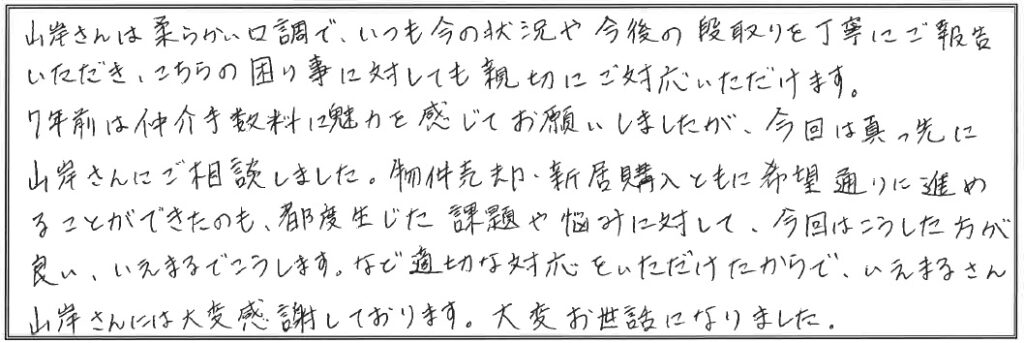 山岸さんは柔らかい口調で、いつも今の状況や今後の段取りを丁寧にご報告
いただき、こちらの困り事に対しても親切にご対応いただけます。
7年前は仲介手数料に魅力を感じてお願いしましたが、今回は真っ先に
山岸さんにご相談しました。物件売却・新居購入ともに希望通りに進め
ることができたのも、都度生じた課題や悩みに対して、今回はこうした方が
良い、いえまるでこうします。など適切な対応をいただけたからで、いえまるさん
山岸さんには大変感謝しております。大変お世話になりました。